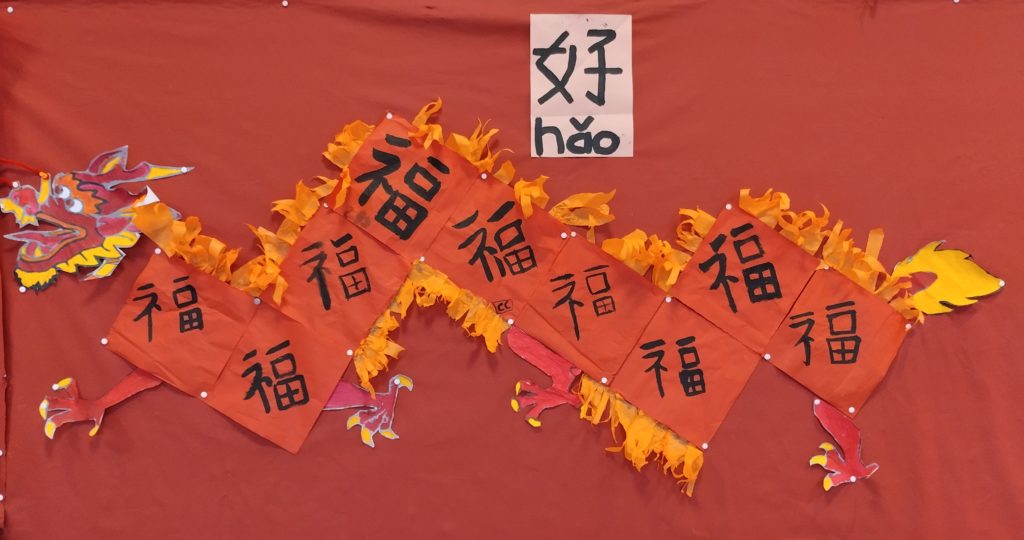 好
hǎo
福
福
福
福
福
福
福
福
福
CC